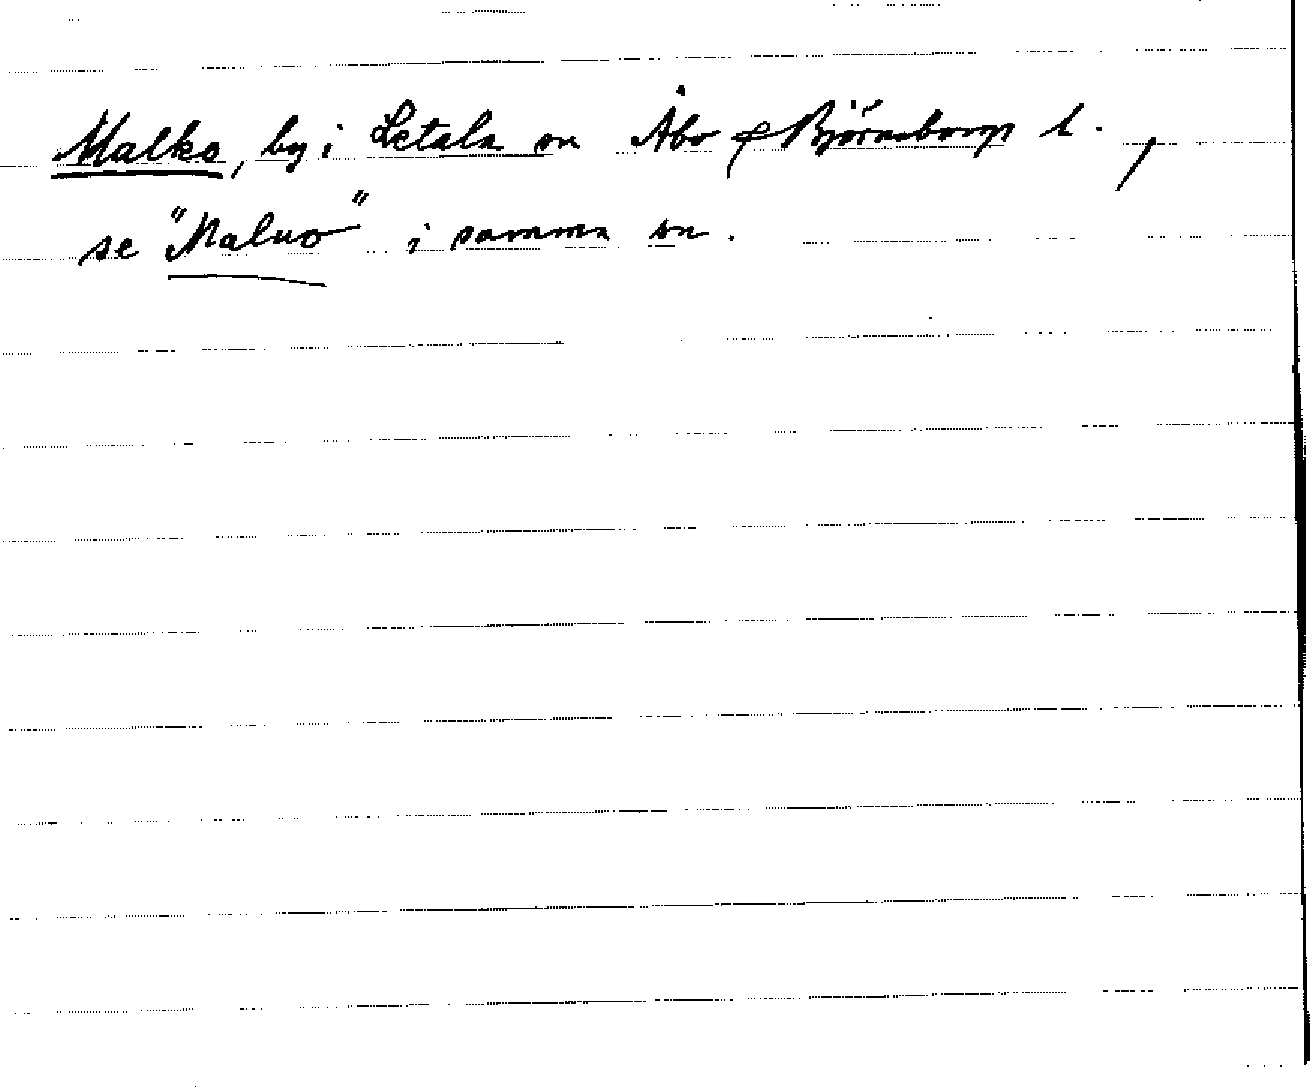 Malko, by i Letala sn Åbo & Björneborgs l.,
se "Maluo" i samma sn.